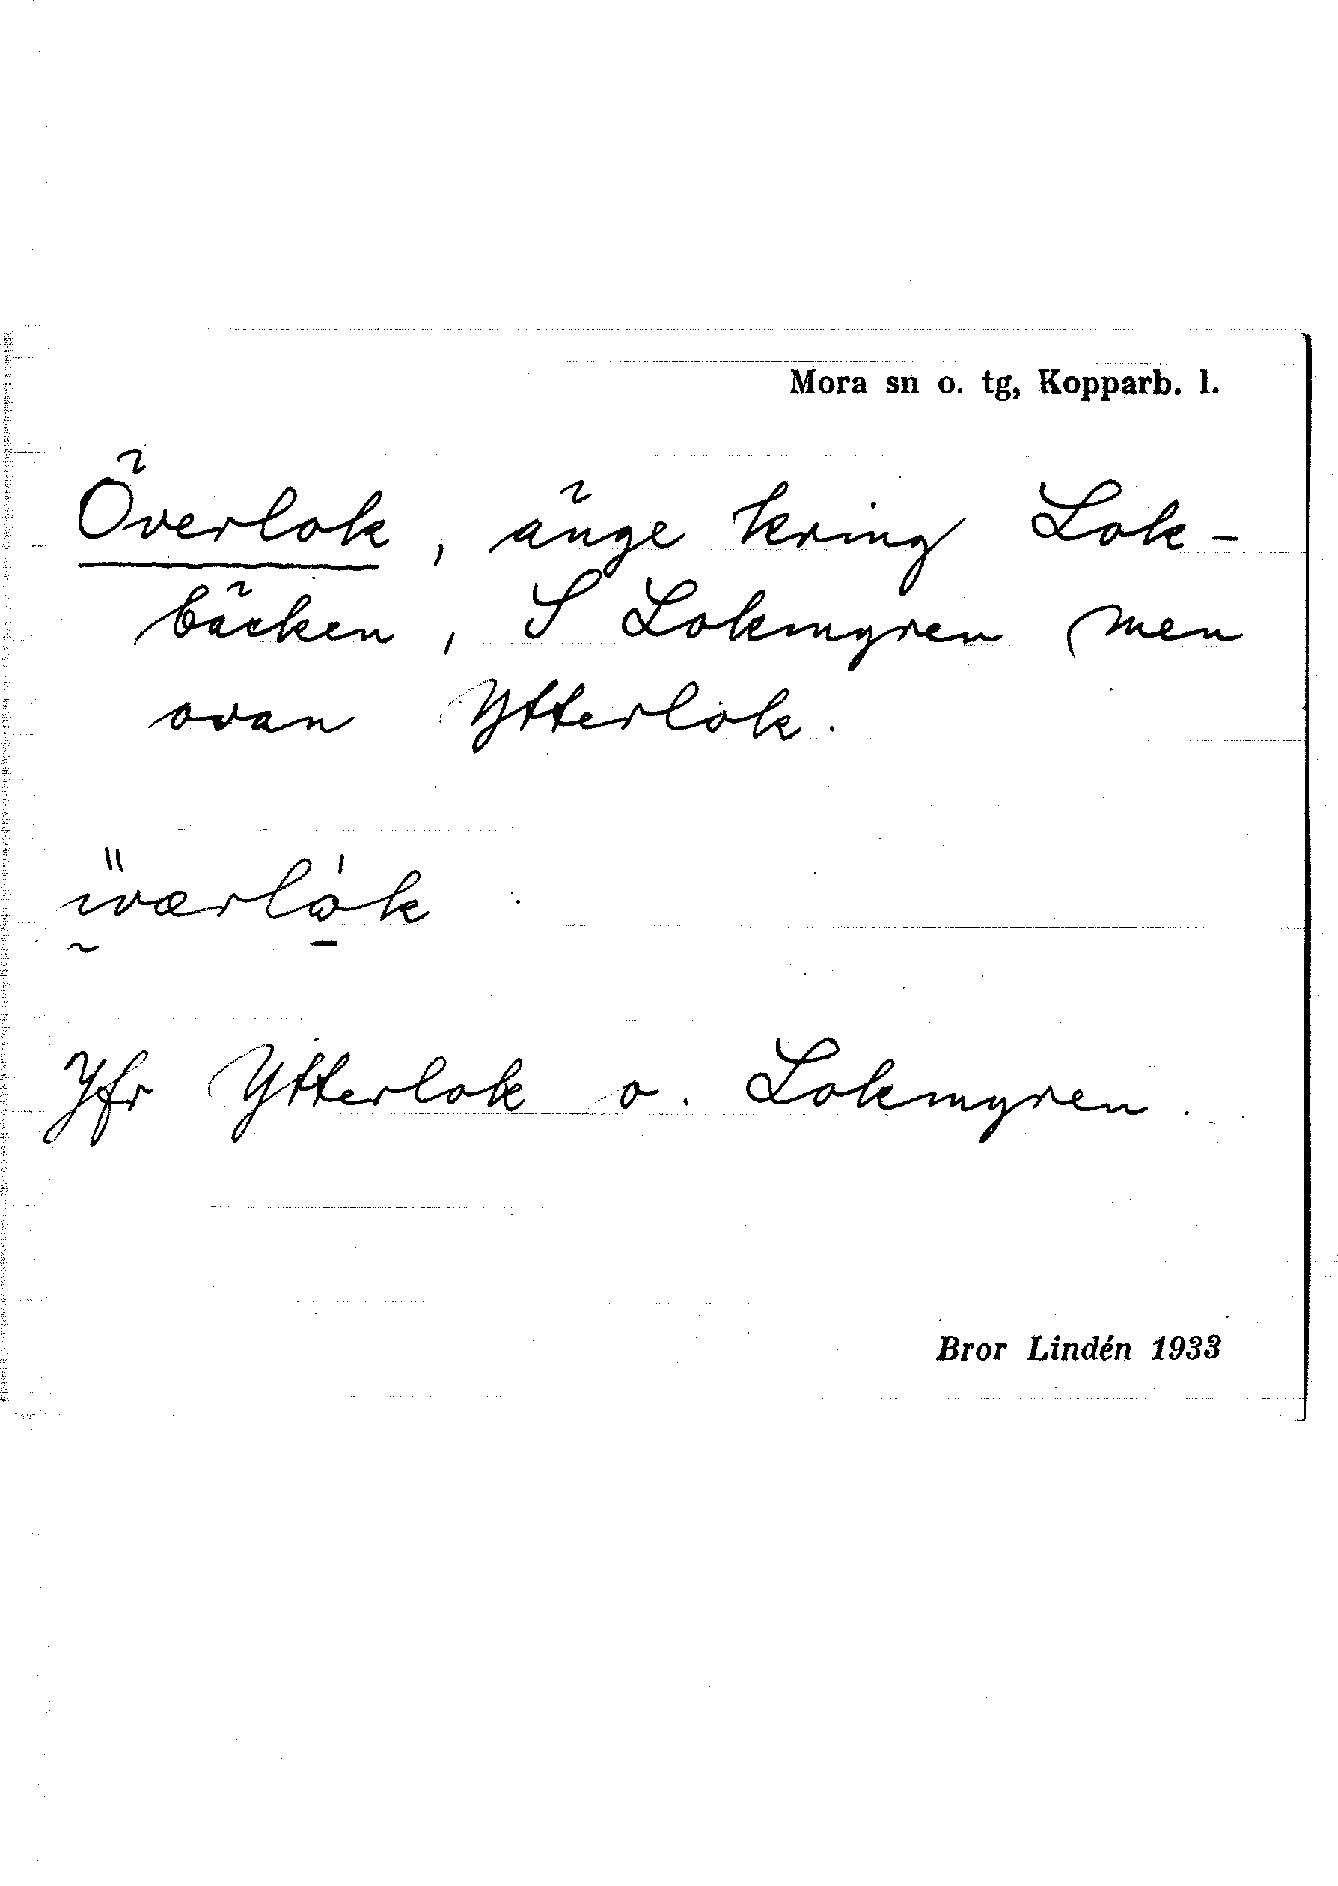 Mora sn o. tg, Kopparb. l.
Överlok, änge kring Lok-
bäcken, S Lokmyren men
ovan Ytterlok.
i̋værlók
Jfr Ytterlok o. Lokmyren.
Bror Lindén 1933